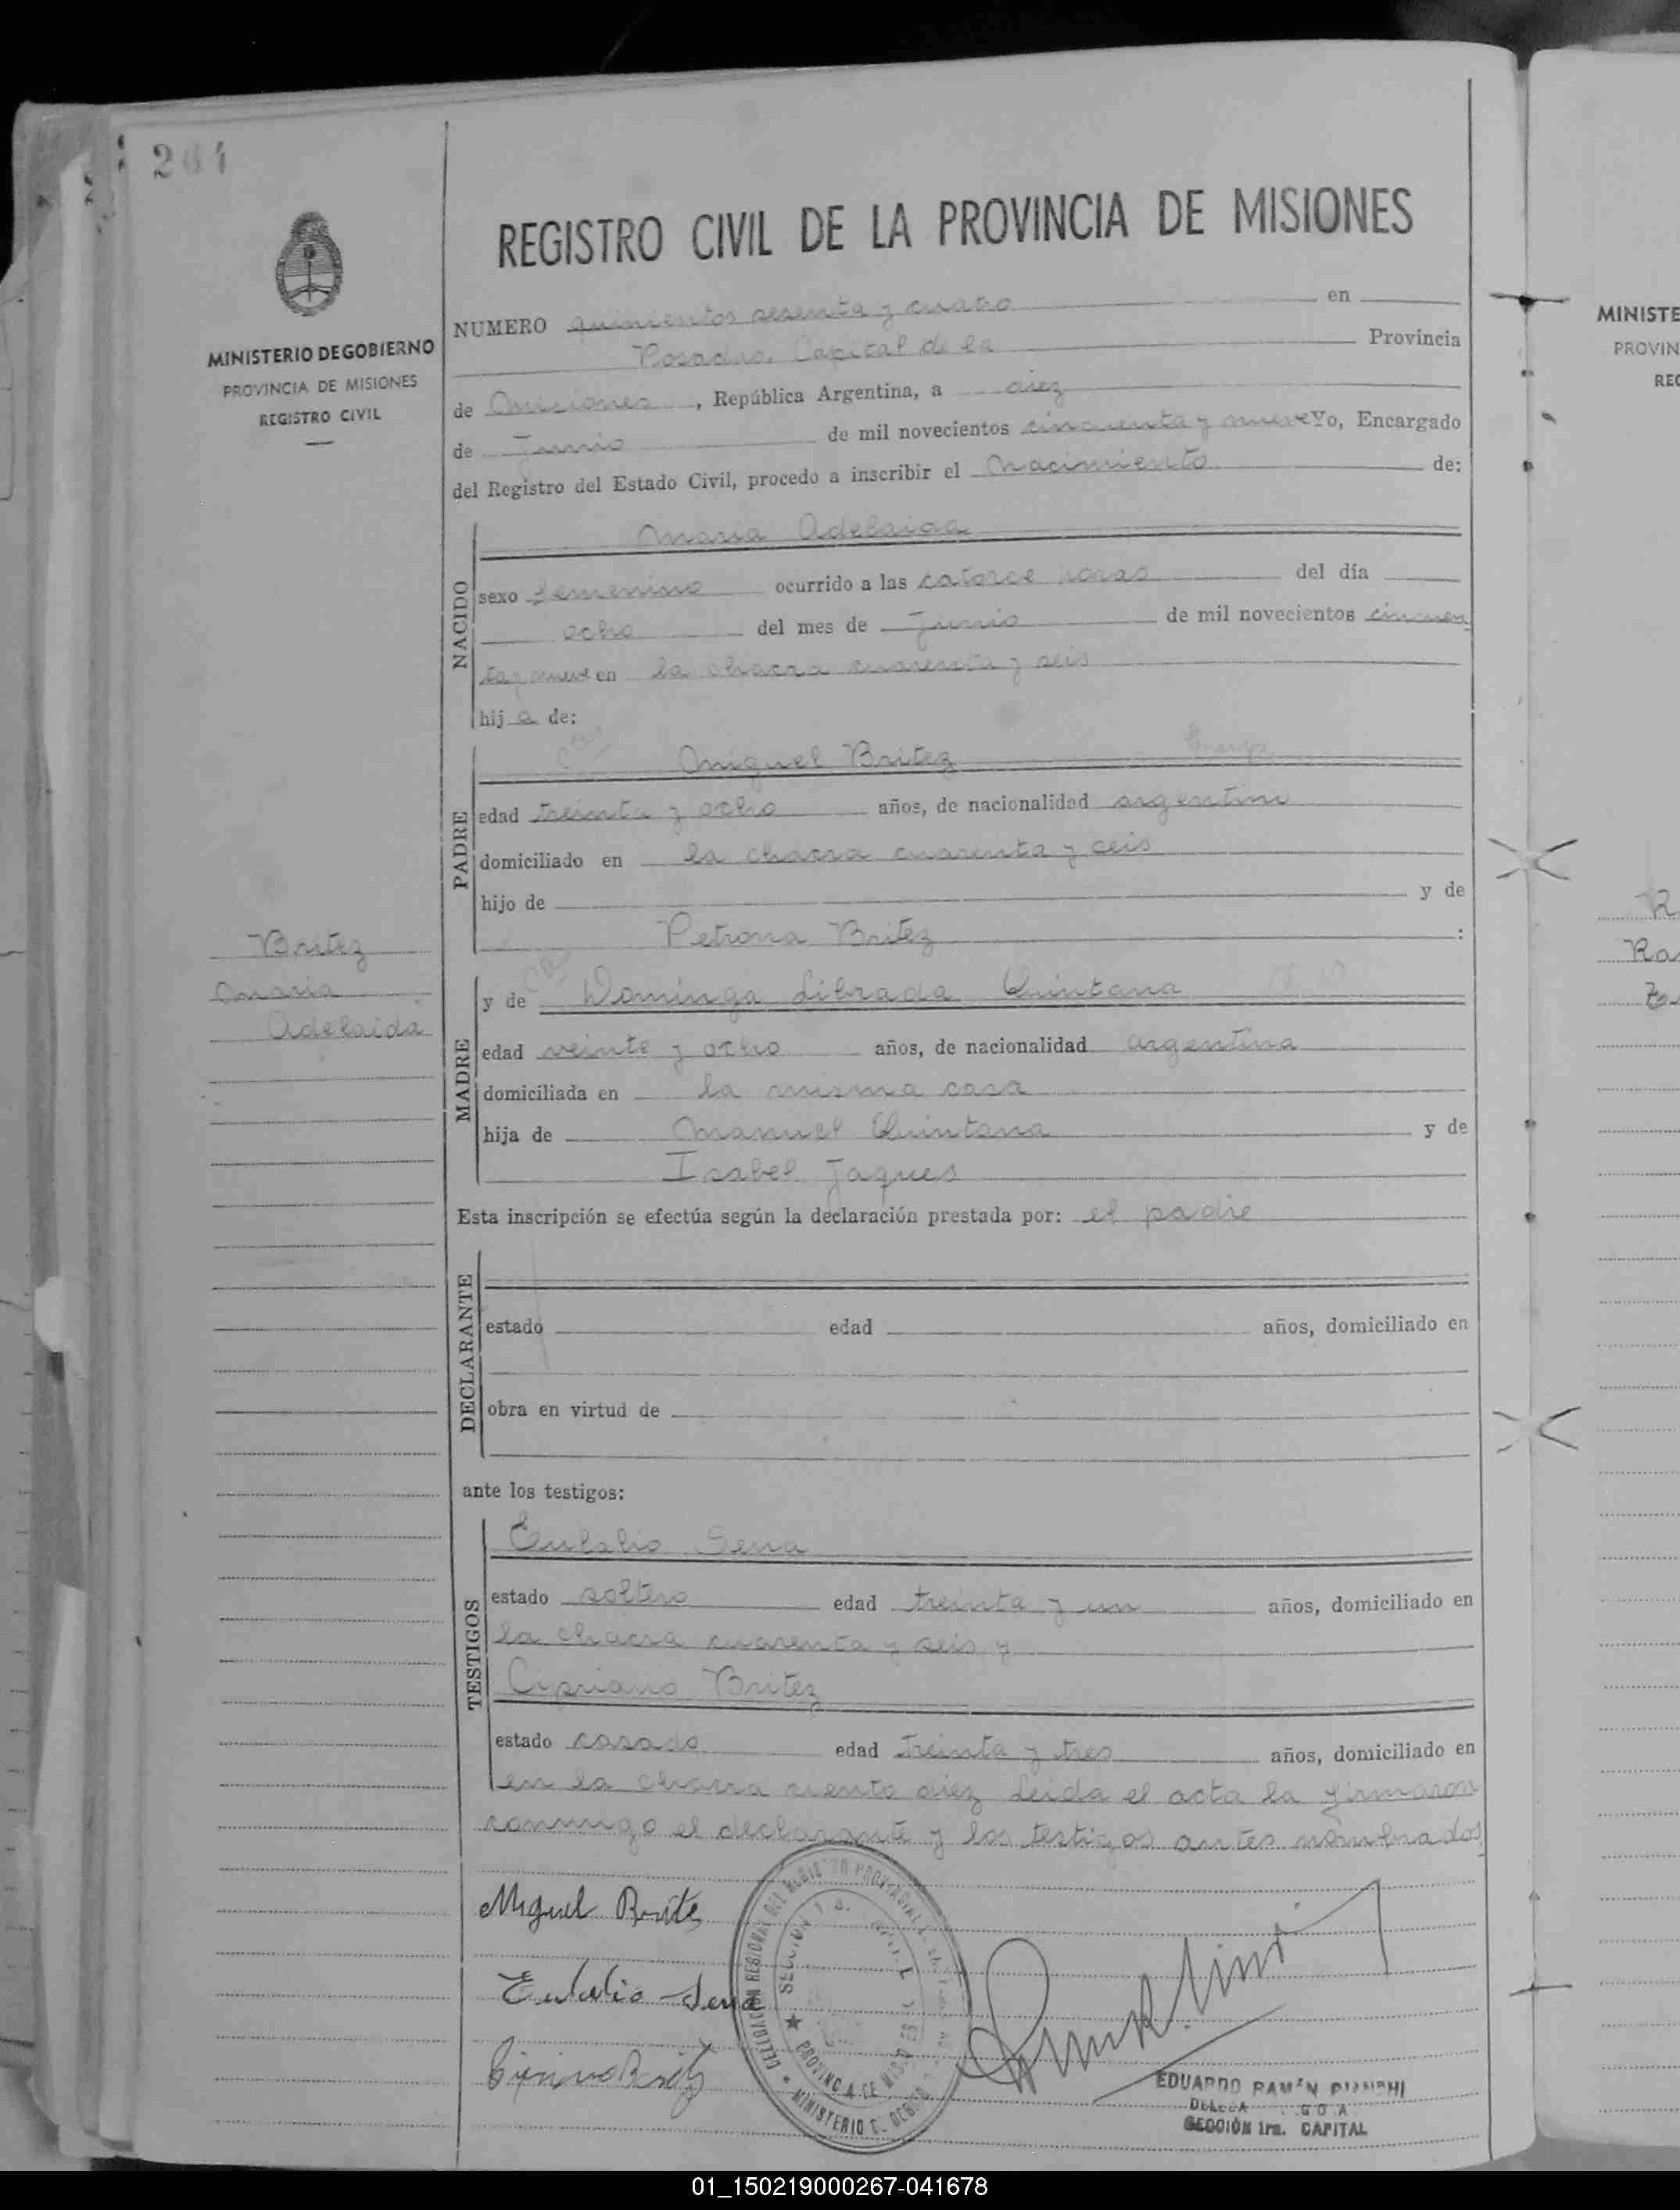 204
REGISTRO CIVIL DE LA PROVINCIA DE MISIONES
MINISTERIO DE GOBIERNO
PROVINCIA DE MISIONES
REGISTRO CIVIL
NUMERO quinientos sesenta y cuatro en
Posadas, Capital de la Provincia
de Misiones, República Argentina, a diez
de Junio de mil novecientos cincuenta y nueve Yo, Encargado
del Registro del Estado Civil, procedo a inscribir el Nacimiento de:
NACIDO
Maria Adelaida
sexo femenino ocurrido a las catorce horas del día
ocho del mes de Junio de mil novecientos cincuen
ta y nueve en la chacra cuarenta y seis
hij a de:
PADRE
Miguel Britez
edad treinta y ocho años, de nacionalidad argentino
domiciliado en la chacra cuarenta y ceis
hijo de y de
Petrona Britez :
Britez
Maria
Adelaida
MADRE
y de Dominga Librada Quintana
edad veinte y ocho años, de nacionalidad argentina
domiciliada en la misma casa
hija de Manuel Quintana y de
Isabel Jaques
Esta inscripción se efectúa según la declaración prestada por: el padre
DECLARANTE
estado edad años, domiciliado en
obra en virtud de
ante los testigos:
TESTIGOS
Eulalio Sena
estado soltero edad treinta y un años, domiciliado en
la chacra cuarenta y seis y
Cipriano Britez
estado casado edad treinta y tres años, domiciliado en
en la chacra ciento diez Leida el acta la firmaron
conmigo el declarante y los testigos antes nombrados
Miguel Brite
Eulalio Sena
DELEGACION REGIONAL DEL REGISTRO PROVINCIAL
SECCION 1a.
PROVINCIA DE MISIONES
MINISTERIO D. GOB
EDUARDO RAMÓN BIANCHI
SECCIÓN 1ra. CAPITAL
MINISTE
PROVIN
REG
R
Ra
01_150219000267-041678